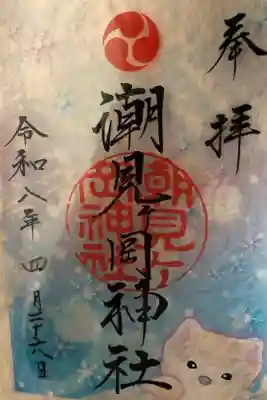 奉拝
潮見ヶ岡神社
潮見ヶ岡神社
令和八年四月二十八日